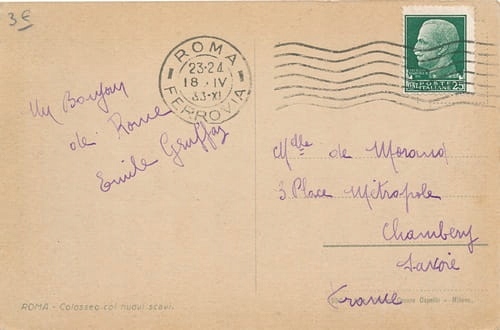 3€
ROMA
23·24
18·IV
33·XI
FERROVIA
POSTE
ITALIANE
25
Un Bonjour
de Rome
Emile
Mlle de Morand
3 Place Métropole
Chambery
Savoie
France
ROMA - Colosseo coi nuovi scavi.
Cesare Capello - Milano.